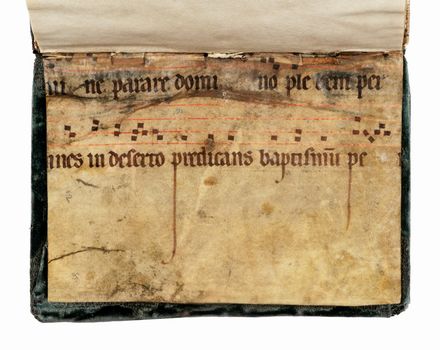 ne parare domi no ple em per
nnes in deserto predicans baptismū pe